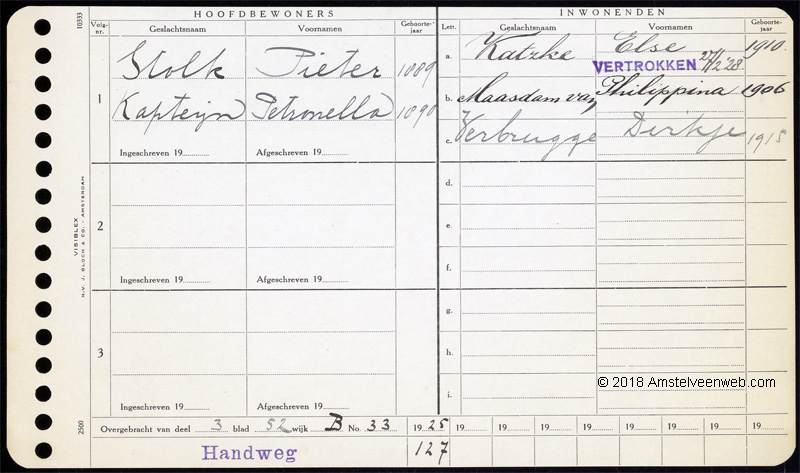 10333
VISIBLEX
N.V. J. BLOCH & CO. - AMSTERDAM
2500
HOOFDBEWONERS
Volg-nr. Geslachtsnaam Voornamen Geboorte-jaar
1 Stolk Pieter 1889
Kapteijn Petronella 1890
Ingeschreven 19 Afgeschreven 19
2
Ingeschreven 19 Afgeschreven 19
3
Ingeschreven 19 Afgeschreven 19
INWONENDEN
Lett. Geslachtsnaam Voornamen Geboorte-jaar
a. Katzke Else 1910.
VERTROKKEN
b. Maasdam van Philippina 1906
c. Verbrugge Dirkje 1915
d.
e.
f.
g.
h.
i.
© 2018 Amstelveenweb.com
Overgebracht van deel 3 blad 52 wijk B No. 33 1925 19 19 19 19 19 19 19 19
Handweg 127